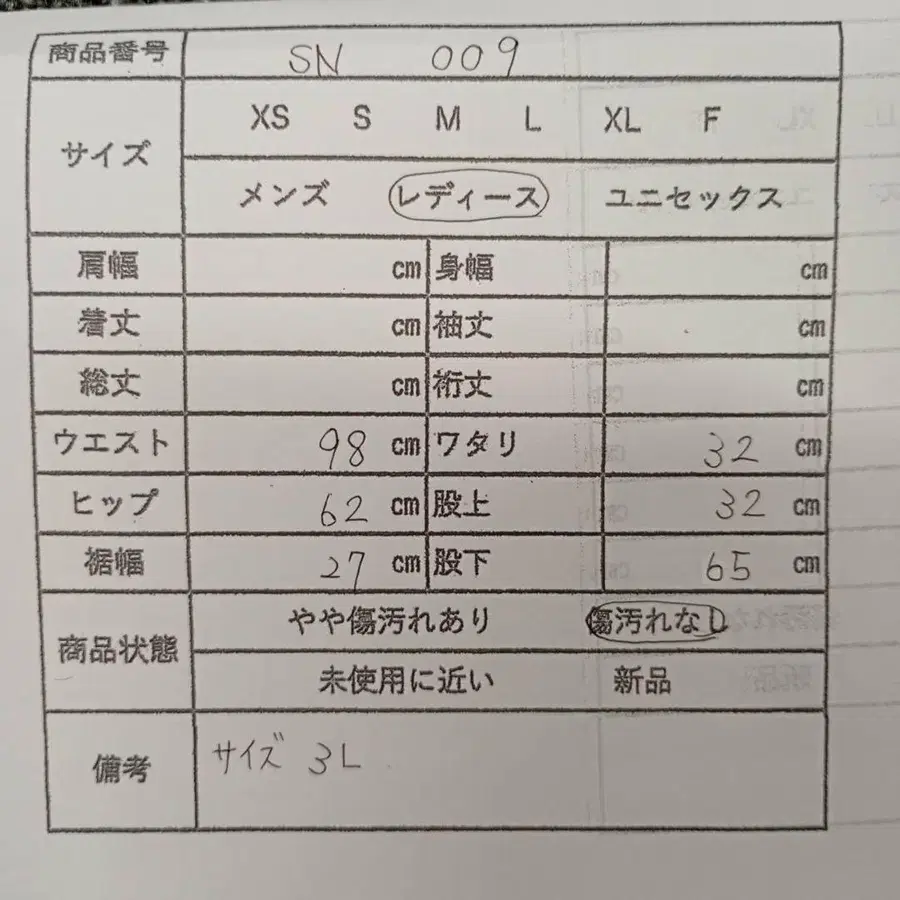 商品番号 SN 009
サイズ XS S M L XL F
メンズ レディース ユニセックス
肩幅 cm 身幅 cm
着丈 cm 袖丈 cm
総丈 cm 裄丈 cm
ウエスト 98 cm ワタリ 32 cm
ヒップ 62 cm 股上 32 cm
裾幅 27 cm 股下 65 cm
商品状態 やや傷汚れあり 傷汚れなし
未使用に近い 新品
備考 サイズ 3L